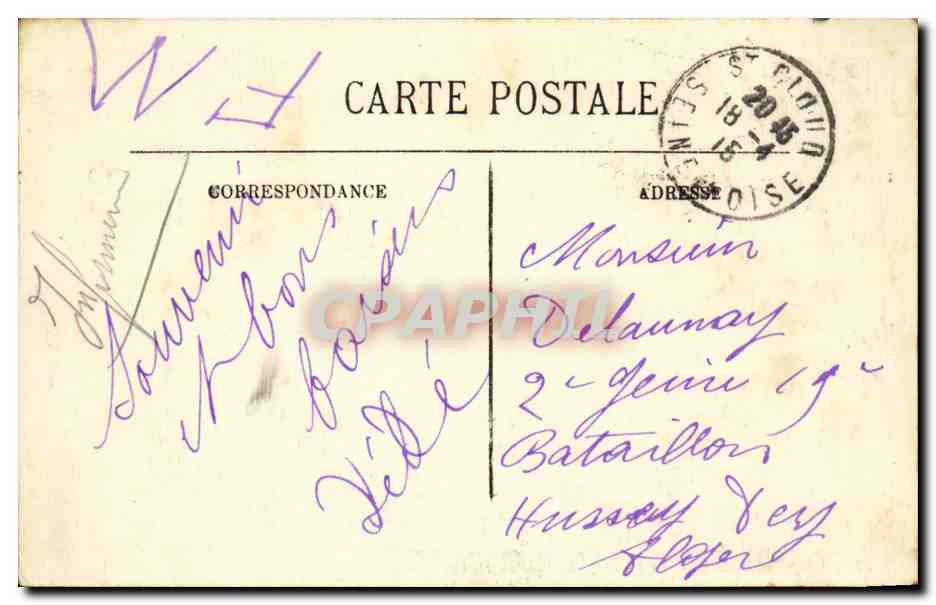 CARTE POSTALE
ST CLOUD
20 45
18 - 4
15
SEINE OISE
CORRESPONDANCE
ADRESSE
Souvenir
et bons
baisers
Monsieur
Delaunay
2e Génie 19e
Bataillon
Hussey Dey
Alger
CPAPHIL